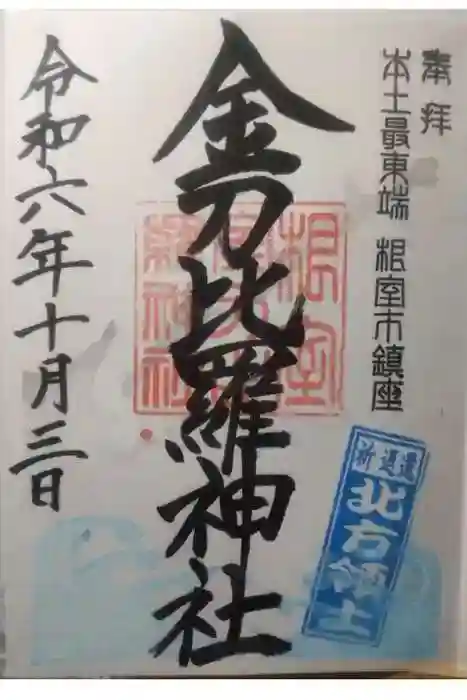 奉拝
本土最東端 根室市鎮座
金刀比羅神社
令和六年十月三日
祈返還
北方領土